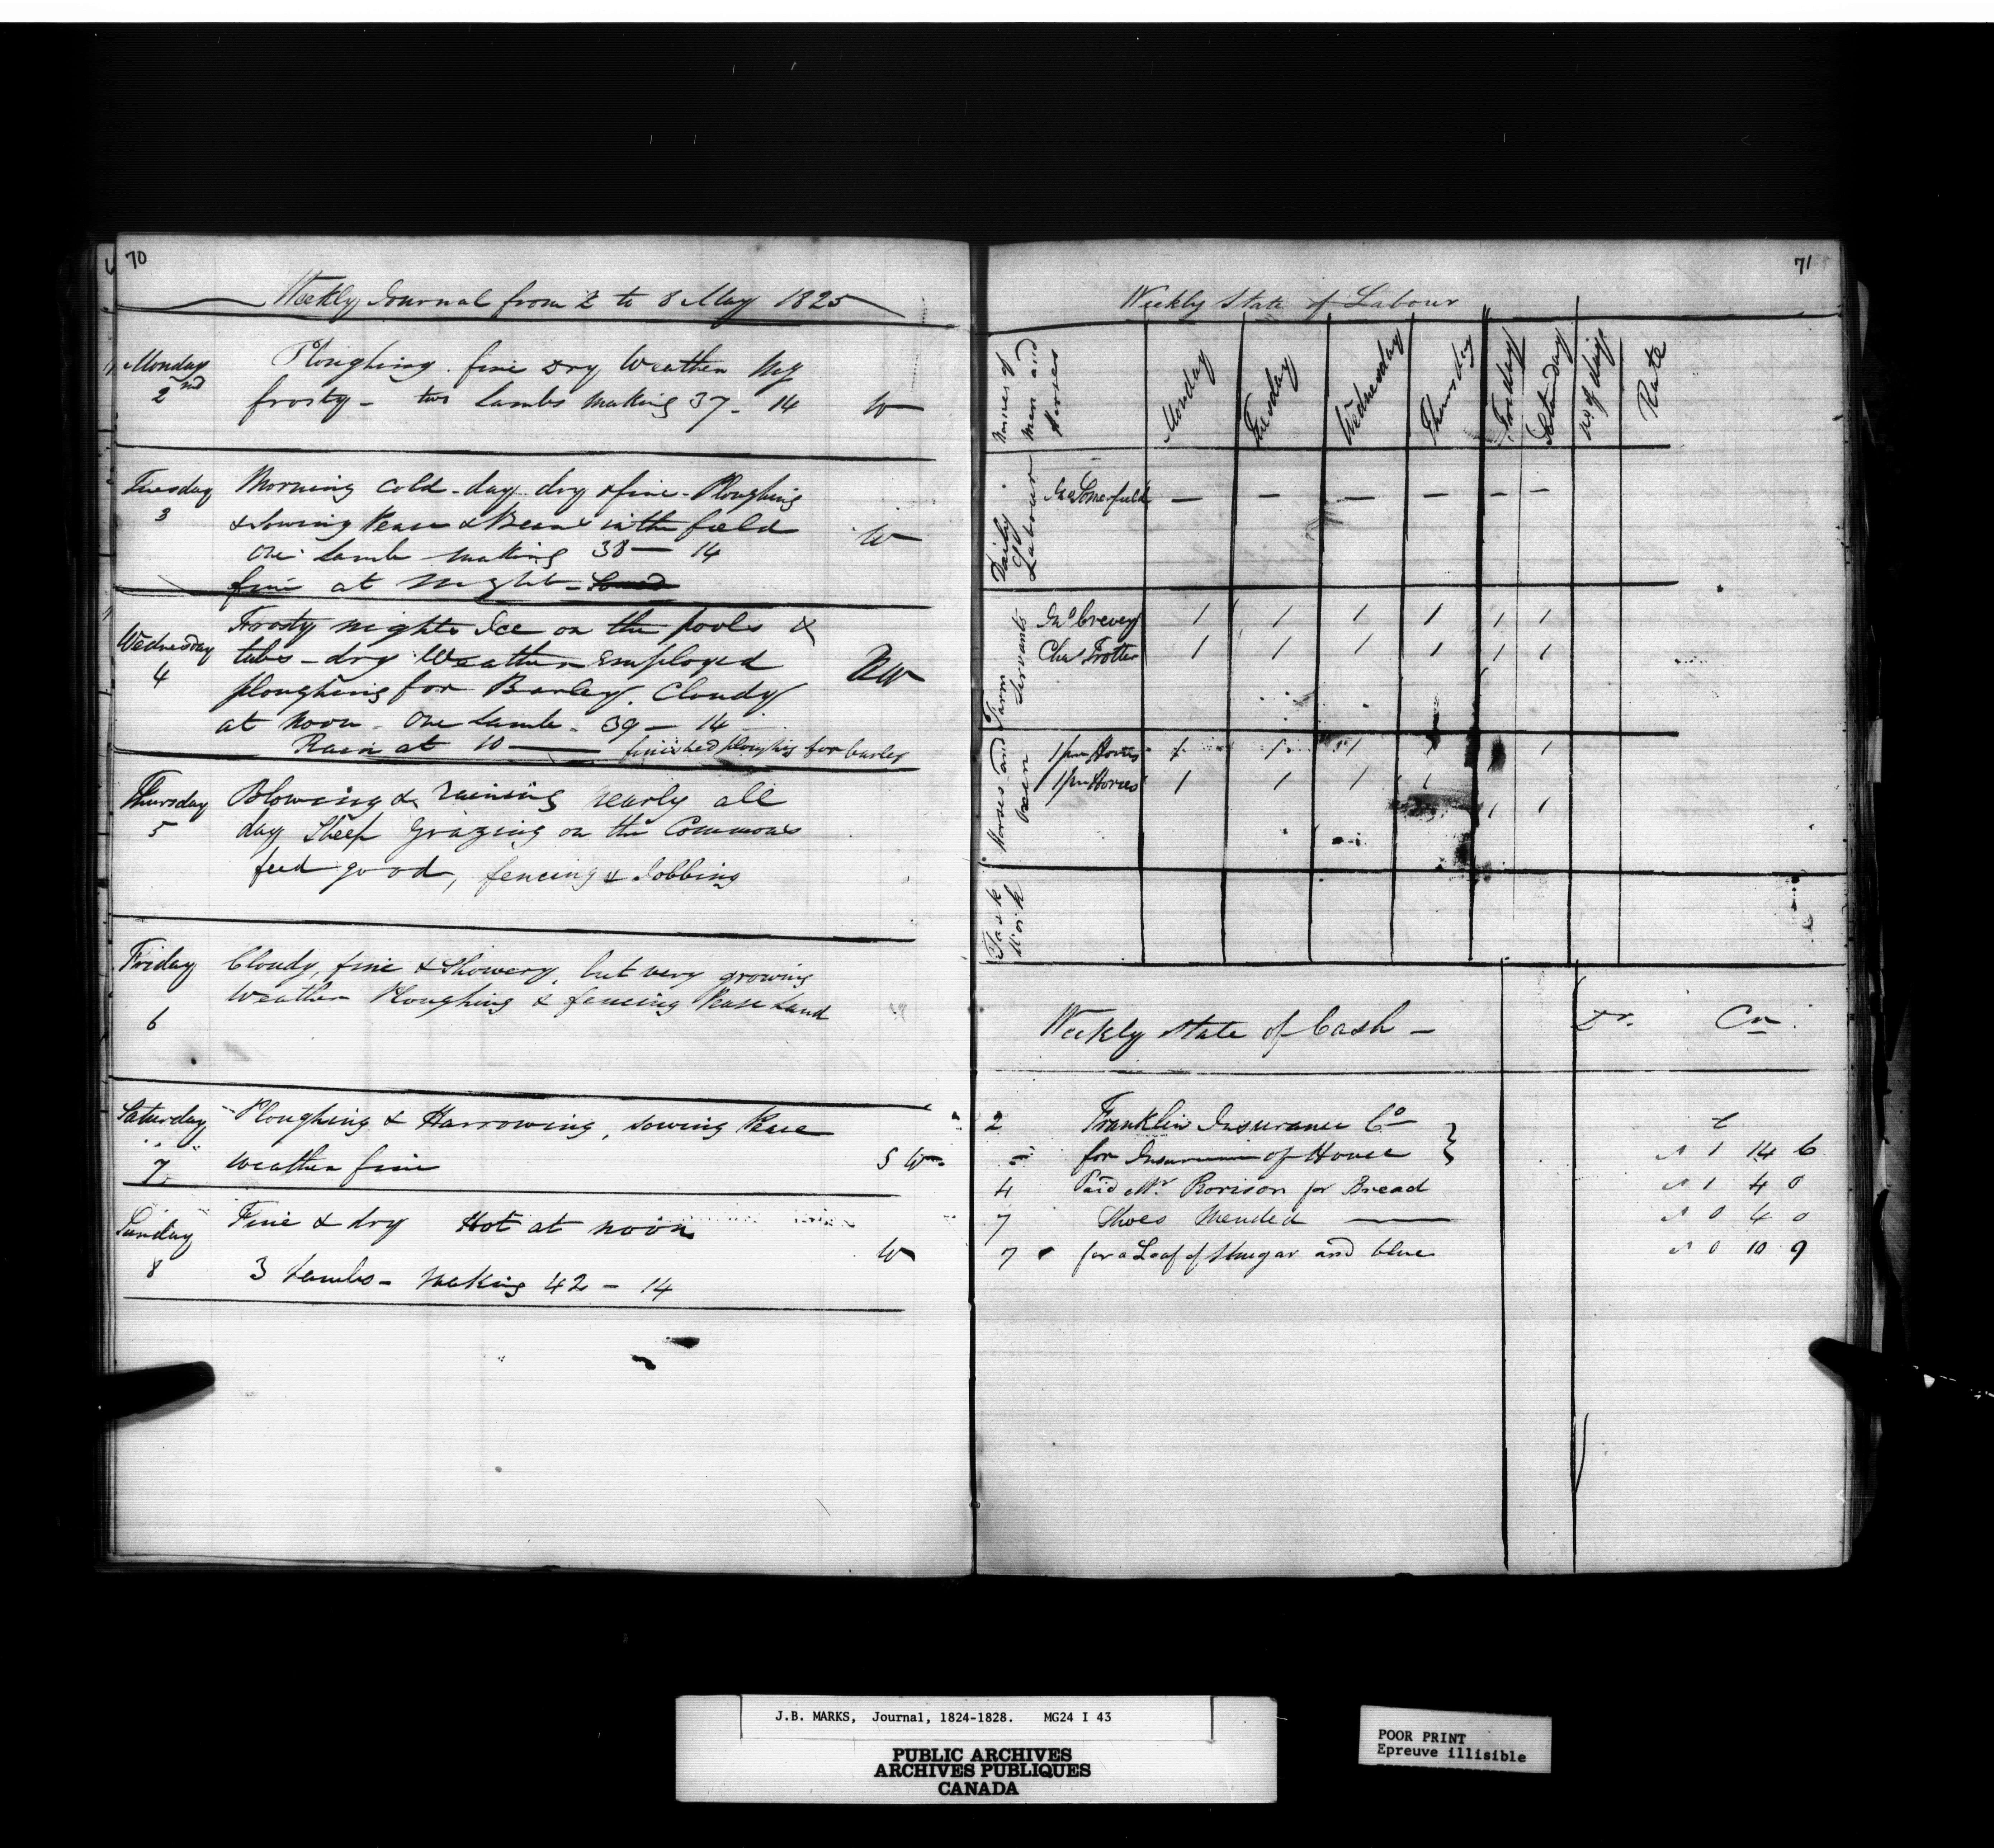 70
Weekly Journal from 2 to 8 May 1825
Monday 2nd
Ploughing. fine dry Weather
frosty - two Lambs making 37 - 14 W
Tuesday 3
Morning cold - day dry & fine - Ploughing
& Sowing Pease & Beans in the field W
One Lamb making 38 - 14
fine at Night -
Wednesday 4
Frosty nights Ice on the pools &
tubs - dry Weather employed
ploughing for Barley. Cloudy
at Noon - One Lamb - 39 - 14
Rain at 10 — finished ploughing for barley
Thursday 5
Blowing & raining nearly all
day Sheep Grazing on the Commons
feed good, fencing & Jobbing
Friday 6
Cloudy, fine & Showery, but very growing
Weather Ploughing & fencing Pease Land
Saturday 7
Ploughing & Harrowing, sowing Pease
weather fine S W
Sunday 8
Fine & dry Hot at noon W
3 Lambs - Making 42 - 14
71
Weekly State of Labour
Names of Men and Horses
Monday Tuesday Wednesday Thursday Friday Saturday No of days Rate
Daily Labour
Somerfield — — — — — —
Farm Servants
Jno Crevey 1 1 1 1 1 1
Chas Trotter 1 1 1 1 1 1
Horses and Oxen
1 pr Horses 1 1 1 1 1
1 pr Horses 1 1 1 1 1 1
Task Work
Weekly State of Cash - Dr. Cr.
2 Franklin Insurance Co
for Insurance of House } 1 14 6
4 Paid Mr. Rorison for Bread 1 4 0
7 Shoes Mended — 0 4 0
7 for a Loaf of Shugar and blue 0 10 9
J.B. MARKS, Journal, 1824-1828. MG24 I 43
PUBLIC ARCHIVES
ARCHIVES PUBLIQUES
CANADA
POOR PRINT
Epreuve illisible